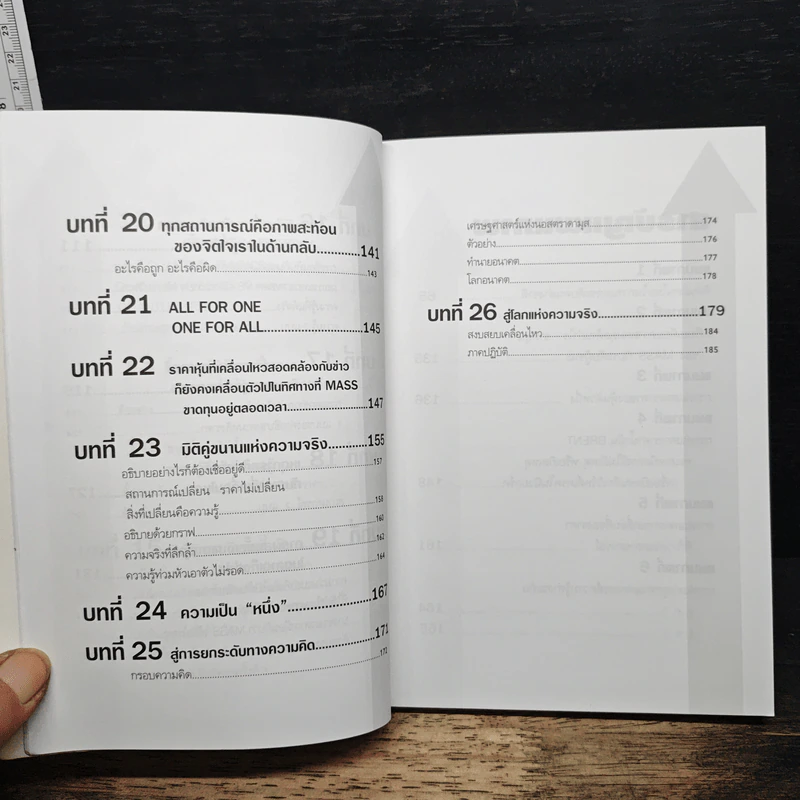 บทที่ 20 ทุกสถานการณ์คือภาพสะท้อน
ของจิตใจเราในด้านกลับ............141
อะไรคือถูก อะไรคือผิด............143
บทที่ 21 ALL FOR ONE
ONE FOR ALL............145
บทที่ 22 ราคาหุ้นที่เคลื่อนไหวสอดคล้องกับข่าว
ก็ยังคงเคลื่อนตัวไปในทิศทางที่ MASS
ขาดทุนอยู่ตลอดเวลา............147
บทที่ 23 มิติคู่ขนานแห่งความจริง............155
อธิบายอย่างไรก็ต้องเชื่ออยู่ดี............157
สถานการณ์เปลี่ยน ราคาไม่เปลี่ยน
สิ่งที่เปลี่ยนคือความรู้............158
อธิบายด้วยกราฟ............160
ความจริงที่ลึกล้ำ............162
ความรู้ท่วมหัวเอาตัวไม่รอด............164
บทที่ 24 ความเป็น “หนึ่ง”............167
บทที่ 25 สู่การยกระดับทางความคิด............171
กรอบความคิด............172
เศรษฐศาสตร์แห่งนอสตราดามุส............174
ตัวอย่าง............176
ทำนายอนาคต............177
โลกอนาคต............178
บทที่ 26 สู่โลกแห่งความจริง............179
สงบสยบเคลื่อนไหว............184
ภาคปฏิบัติ............185